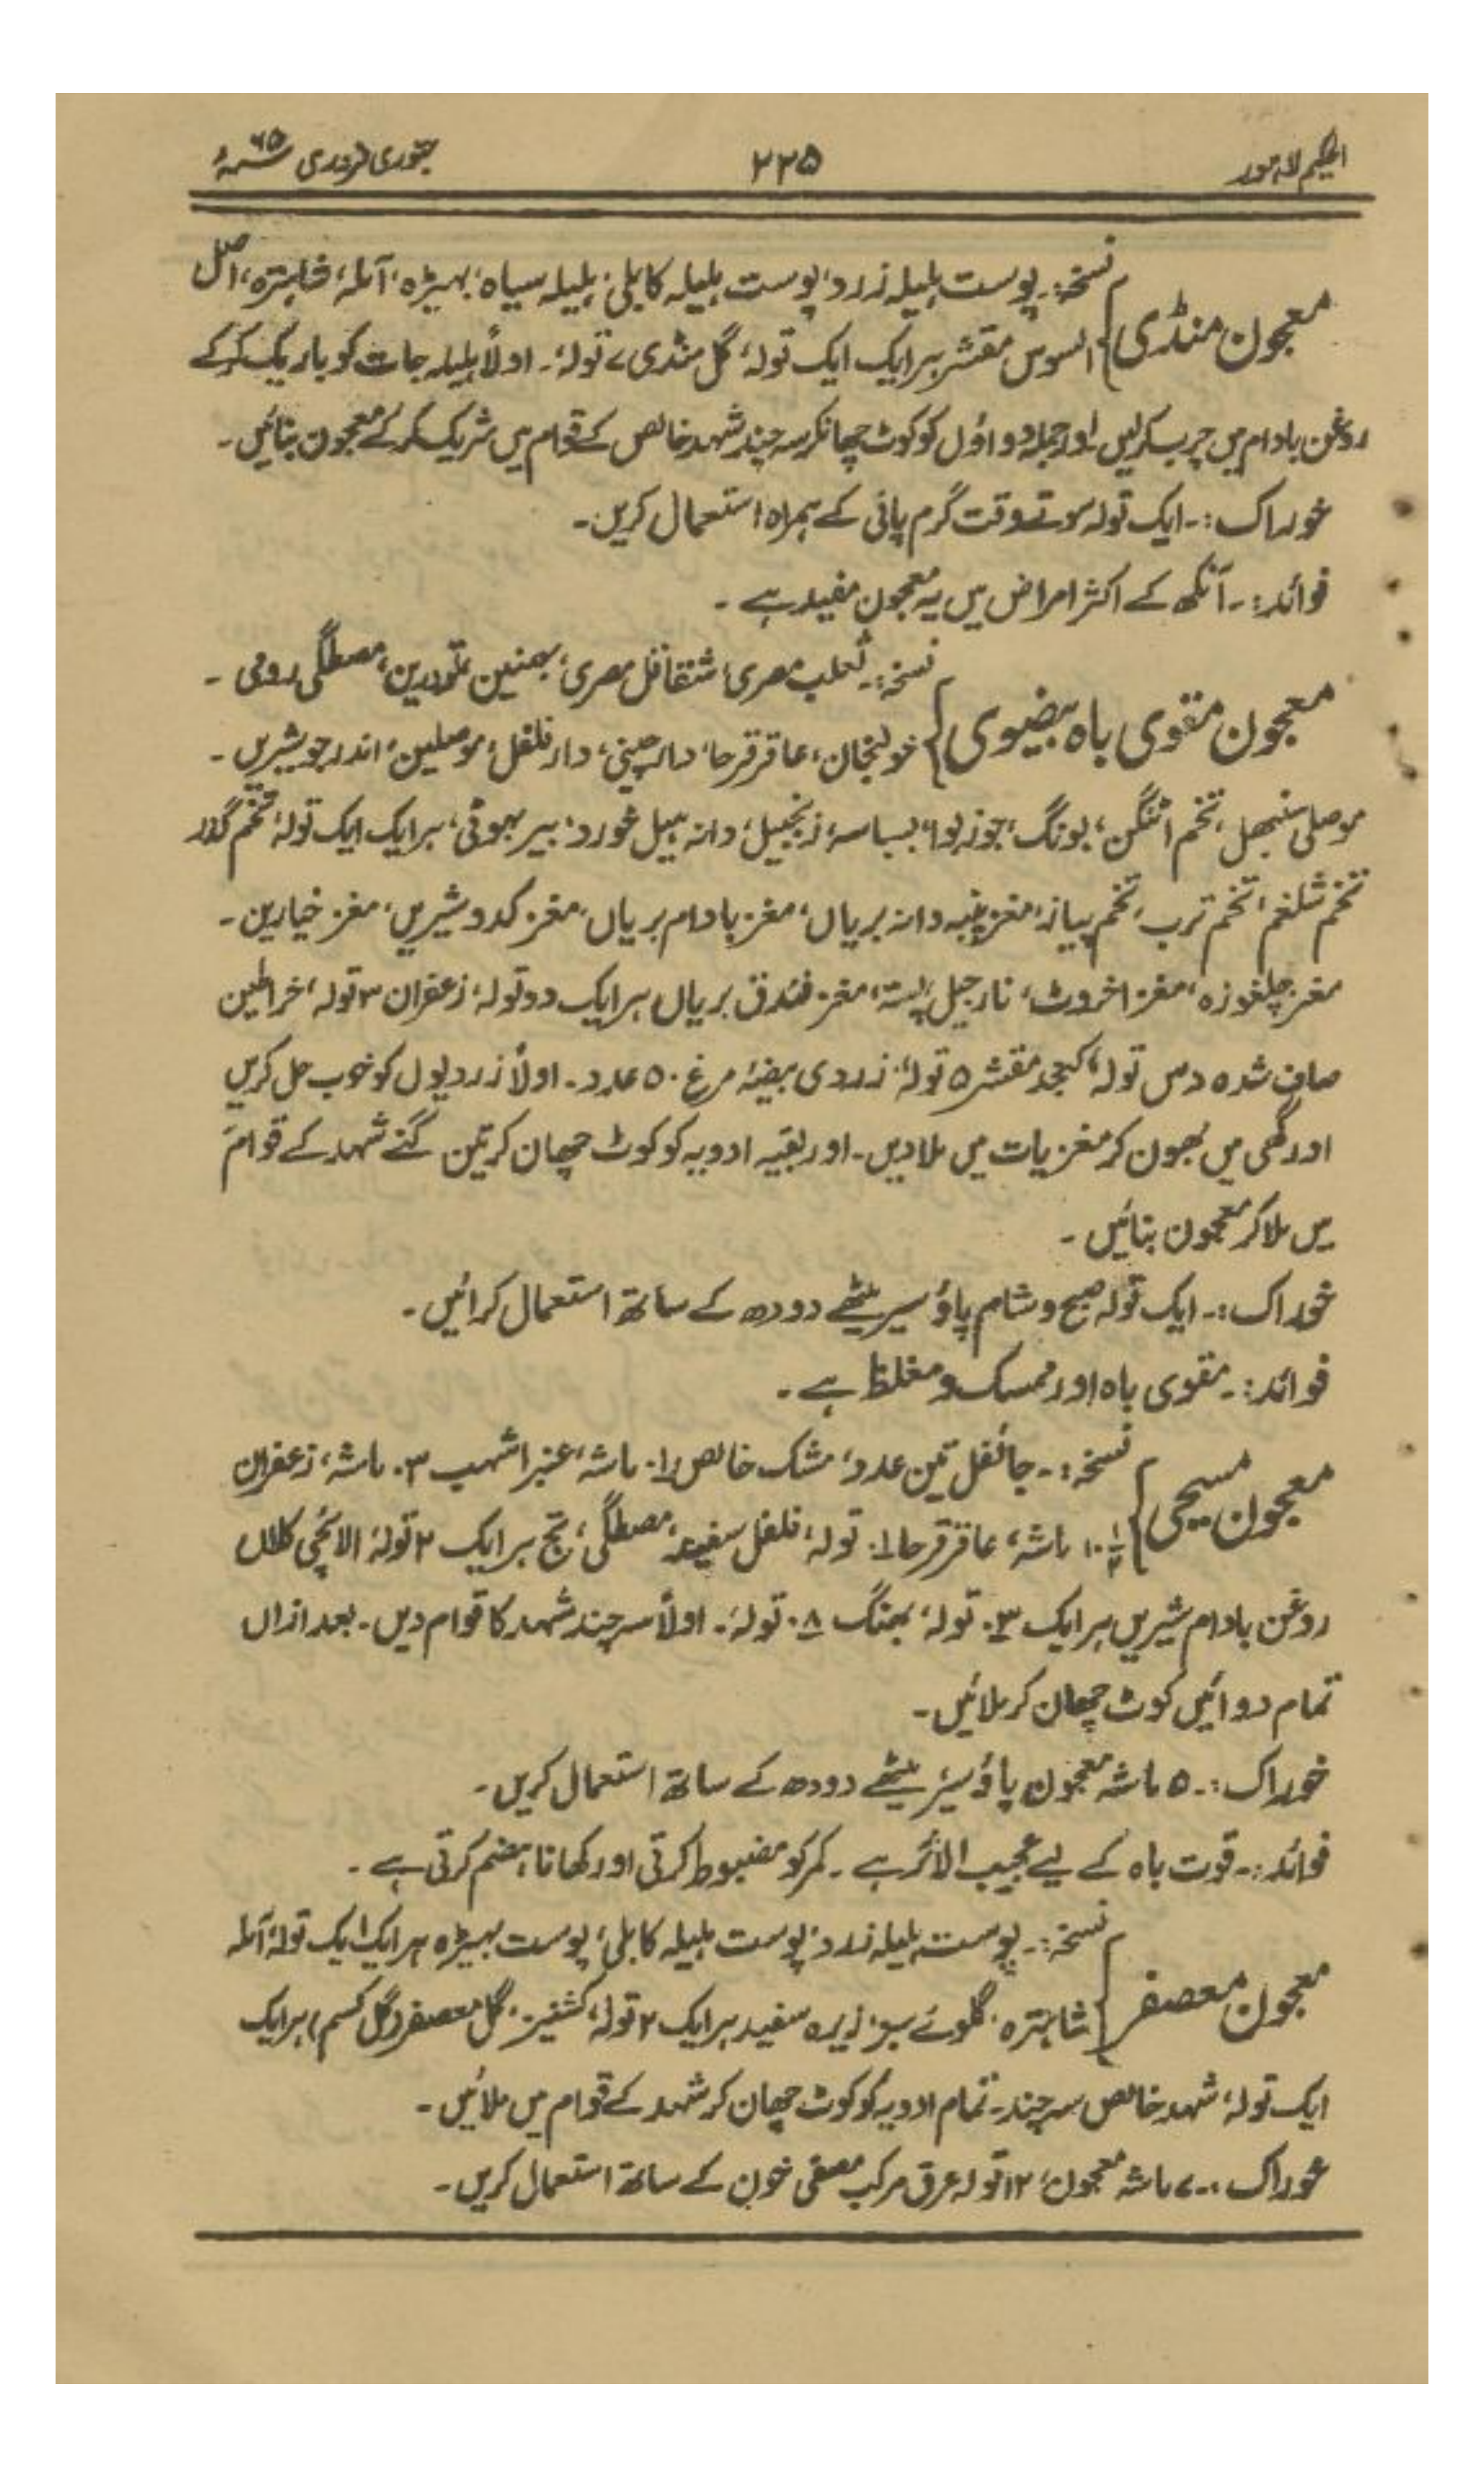 الحکیم لاہور ۲۲۵ جنوری فروری ۶۵ سنہء
معجون منڈی } نسخہ:۔ پوست ہلیلہ زرد، پوست ہلیلہ کابلی، ہلیلہ سیاہ، بہیڑہ، آملہ، شاہترہ، اصل
السوس مقشر ہر ایک ایک تولہ، گل منڈی ۷ تولہ۔ اولاً ہلیلہ جات کو باریک کر کے
روغن بادام میں چرب کرلیں اور جملہ دواؤں کو کوٹ چھانکر سہ چند شہد خالص کے قوام میں شریک کر کے معجون بنائیں۔
خوراک:۔ ایک تولہ سوتے وقت گرم پانی کے ہمراہ استعمال کریں۔
فوائد:۔ آنکھ کے اکثر امراض میں یہ معجون مفید ہے۔
معجون مقوی باہ بیضوی } نسخہ:۔ ثعلب مصری، شقاقل مصری، بہمنین تودرین، مصطگی رومی۔
خولنجان، عاقرقرحا، دارچینی، دارفلفل، موصلین، اندرجو شیریں۔
موصلی سنبھل، تخم اٹنگن، لونگ، جوزبوا، بسباسہ، زنجبیل، دانہ ہیل خورد، بیر بہوٹی، ہر ایک ایک تولہ، تخم گذر
تخم شلغم، تخم ترب، تخم پیاز، مغز پنبہ دانہ بریاں، مغز بادام بریاں، مغز کدو شیریں، مغز خیارین۔
مغز چلغوزہ، مغز اخروٹ، نارجیل، پستہ، مغز فندق بریاں ہر ایک دو تولہ، زعفران ۳ تولہ، خراطین
صاف شدہ دس تولہ، کنجد مقشر ۵ تولہ، زردی بیضہ مرغ ۵۰ عدد۔ اولاً زردیوں کو خوب حل کریں
اور گھی میں بھون کر مغزیات میں ملا دیں۔ اور بقیہ ادویہ کو کوٹ چھان کر تین گنے شہد کے قوام
میں ملا کر معجون بنائیں۔
خوراک:۔ ایک تولہ صبح و شام پاؤ سیر میٹھے دودھ کے ساتھ استعمال کرائیں۔
فوائد:۔ مقوی باہ اور ممسک و مغلظ ہے۔
معجون مسیحی } نسخہ:۔ جائفل تین عدد، مشک خالص ماشہ، عنبر اشہب ماشہ، زعفران
ماشہ، عاقرقرحا تولہ، فلفل سفید، مصطگی، تج ہر ایک ۲ تولہ، الائچی کلاں
روغن بادام شیریں ہر ایک تولہ، بھنگ تولہ۔ اولاً سہ چند شہد کا قوام دیں۔ بعد ازاں
تمام دوائیں کوٹ چھان کر ملائیں۔
خوراک:۔ ۵ ماشہ معجون پاؤ سیر میٹھے دودھ کے ساتھ استعمال کریں۔
فوائد:۔ قوت باہ کے لیے عجیب الاثر ہے۔ کمر کو مضبوط کرتی اور کھانا ہضم کرتی ہے۔
معجون معصفر } نسخہ:۔ پوست ہلیلہ زرد، پوست ہلیلہ کابلی، پوست بہیڑہ ہر ایک ایک تولہ، آملہ
شاہترہ، گلوئے سبز، زیرہ سفید ہر ایک ۲ تولہ، کشنیز، گل معصفر (گل کسم) ہر ایک
ایک تولہ، شہد خالص سہ چند۔ تمام ادویہ کو کوٹ چھان کر شہد کے قوام میں ملائیں۔
خوراک:۔ ۷ ماشہ معجون، ۱۲ تولہ عرق مرکب مصفی خون کے ساتھ استعمال کریں۔